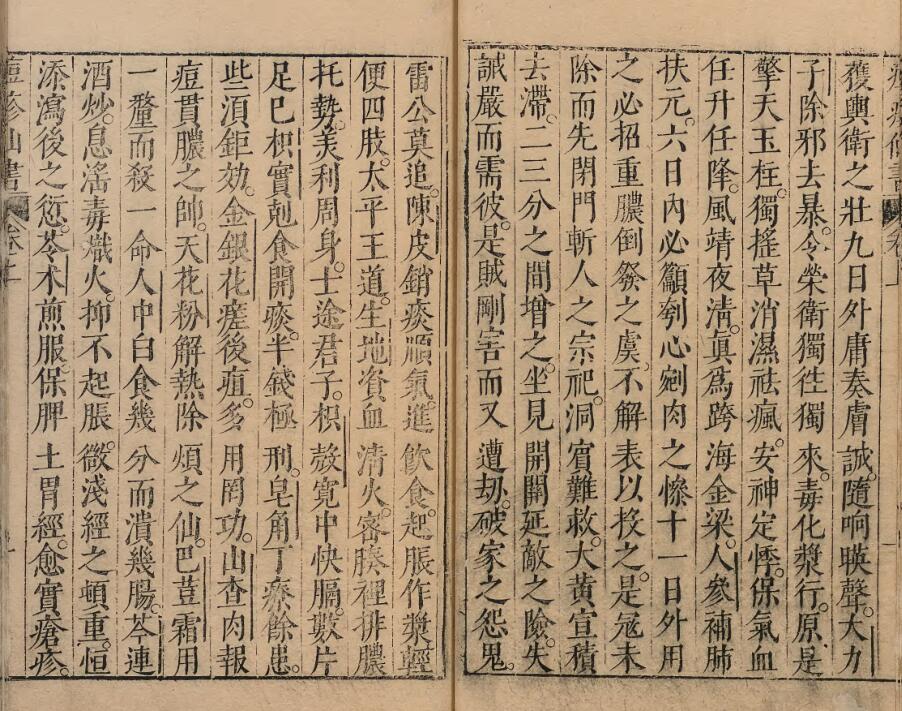 獲輿衛之壯九日外庸奏膚諴隨呴暎聲。大力
子除邪去暴。令榮衛獨徃獨來。毒化漿行。原是
擎天玉柱。獨搖草消濕祛瘋。安神定悸。保氣血
任升任降。風靖夜淸。真爲跨海金梁。人參補肺
扶元。六日內必顲刳心剜肉之慘十一日外用
之必招重膿倒發之虞。不解表以投之。是冦未
除而先閉門斬人之宗祀。洞賔難救。大黃宣積
去滯。二三分之間增之。坐見開關延敵之險。失
諴嚴而需彼。是賊剛害而又遭刼。破家之怨鬼。
雷公莫追。陳皮銷痰順氣進飮食。起脹作漿輕
便四肢。太平王道。生地資血清火。密腠裡排膿
托勢。美利周身。士途君子。枳殼寬中快膈。數片
足巳枳實剋食開痰。半錢極刑。皂角丁療餘患。
些湏鉅効。金銀花瘥後疽。多用罔功。山查肉報
痘貫膿之帥。天花粉解熱除煩之仙。巴荳霜用
一釐而殺一命人中白食幾分而潰幾腸。芩連
酒炒。息滛毒熾火。抑不起脹。微淺經之頓重。恒
添瀉後之愆。苓术煎服。保脾土胃經。愈實瘡疹。
痘疹仙書 卷二